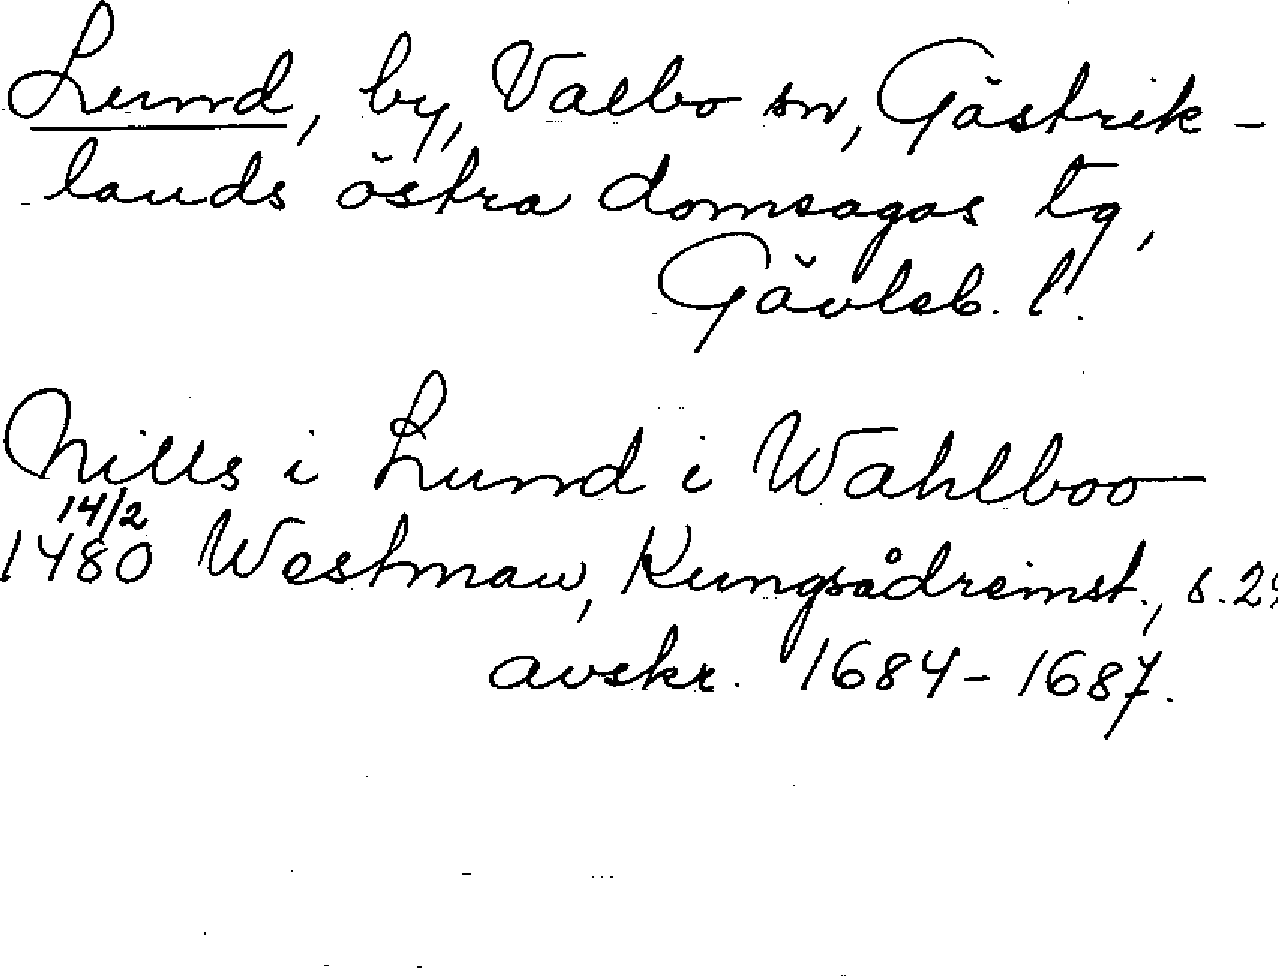 Lund, by, Valbo sn, Gästrik-
lands östra domsagas tg,
Gävleb. l.
Nills i Lund i Wahlboo
14/2
1480 Westman, Kungsådreinst., s.
avskr. 1684-1687.